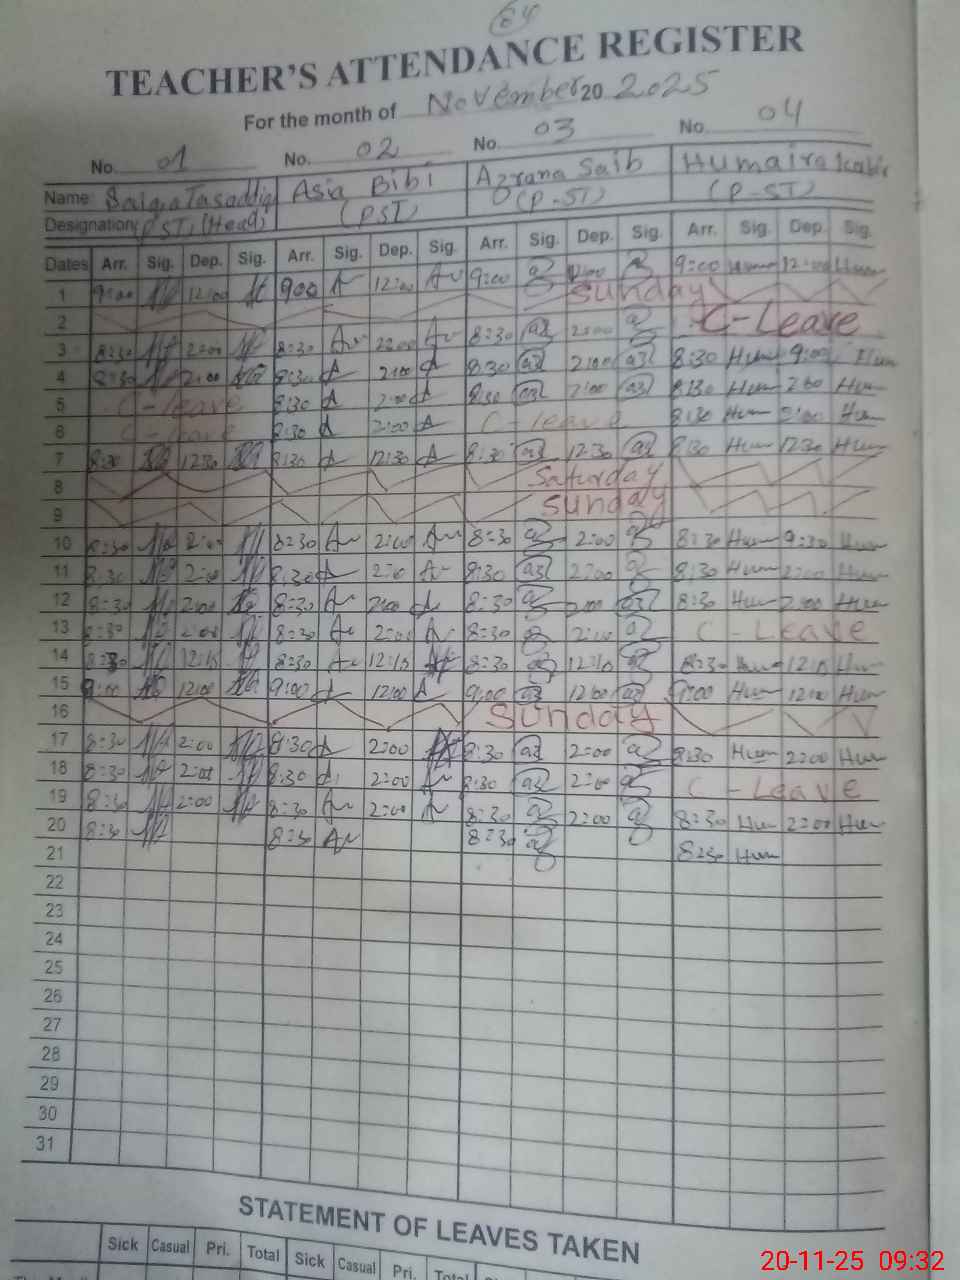 64
TEACHER'S ATTENDANCE REGISTER
For the month of November 20 2025
No. 01 No. 02 No. 03 No. 04
Name: Saiqa Tasaddiq Asia Bibi Azrana Saib Humaira Kabir
Designation: PST, (Head) (PST) (P-ST) (P-ST)
Dates Arr. Sig. Dep. Sig. Arr. Sig. Dep. Sig. Arr. Sig. Dep. Sig. Arr. Sig. Dep. Sig.
1 9:00 12:00 900 12:00 9:00 12:00 9:00 Hum 12:00 Hum
2 Sunday
3 8:30 2:00 8:30 2:00 8:30 2:00 C-Leave
4 8:30 2:00 8:30 2:00 8:30 2:00 8:30 Hum 9:00 Hum
5 C-leave 8:30 2:00 8:30 2:00 8:30 Hum 2:00 Hum
6 C-leave 8:30 2:00 C-leave 8:30 Hum 2:00 Hum
7 8:30 12:30 8:30 12:30 8:30 12:30 8:30 Hum 12:30 Hum
8 Saturday
9 Sunday
10 8:30 2:00 8:30 2:00 8:30 2:00 8:30 Hum 9:30 Hum
11 8:30 2:00 8:30 2:00 8:30 2:00 8:30 Hum 2:00 Hum
12 8:30 2:00 8:30 2:00 8:30 2:00 8:30 Hum 2:00 Hum
13 8:30 2:00 8:30 2:00 8:30 2:00 C-Leave
14 8:30 12:10 8:30 12:10 8:30 12:10 8:30 Hum 12:10 Hum
15 9:00 12:00 9:00 12:00 9:00 12:00 9:00 Hum 12:00 Hum
16 Sunday
17 8:30 2:00 8:30 2:00 8:30 2:00 8:30 Hum 2:00 Hum
18 8:30 2:00 8:30 2:00 8:30 2:00 C-Leave
19 8:30 2:00 8:30 2:00 8:30 2:00 8:30 Hum 2:00 Hum
20 8:30 8:30 8:30 8:30 Hum
21
22
23
24
25
26
27
28
29
30
31
STATEMENT OF LEAVES TAKEN
Sick Casual Pri. Total Sick Casual Pri. Total
20-11-25 09:32